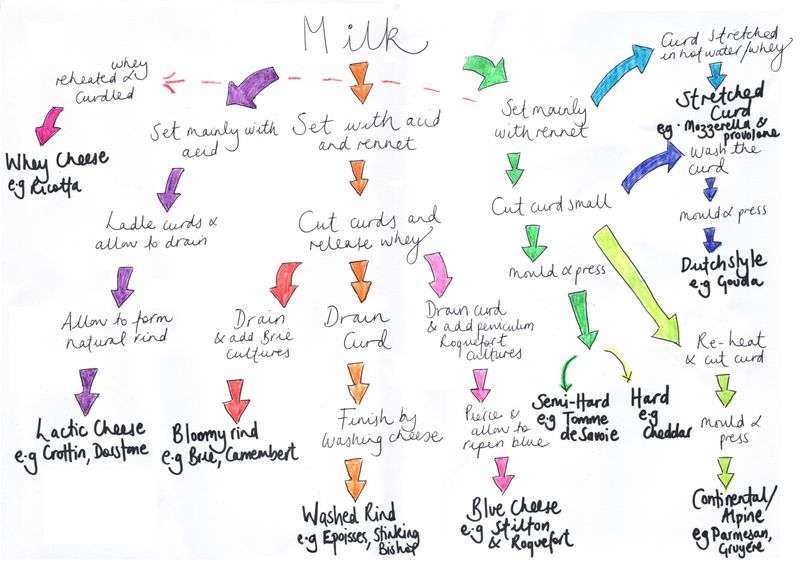 Milk
whey
reheated &
curdled
Whey Cheese
e.g Ricotta
Set mainly with
acid
Ladle curds &
allow to drain
Allow to form
natural rind
Lactic Cheese
e.g Crottin, Dorstone
Set with acid
and rennet
Cut curds and
release whey
Drain
& add Brie
cultures
Bloomy rind
e.g Brie, Camembert
Drain
Curd
Finish by
Washing cheese
Washed Rind
e.g Epoisses, Stinking
Bishop
Drain curd
& add peniculum
Roquefort
cultures
Pierce &
allow to
ripen blue
Blue Cheese
e.g Stilton
& Roquefort
Set mainly
with rennet
Cut curd small
mould & press
Semi-Hard
e.g Tomme
de Savoie
Hard
e.g
Cheddar
Curd stretched
in hot water/whey
Stretched
Curd
e.g. Mozzerella &
provolone
Wash the
curd
mould & press
Dutch style
e.g Gouda
Re-heat
& cut curd
mould &
press
Continental/
Alpine
eg Parmesan,
Gruyére